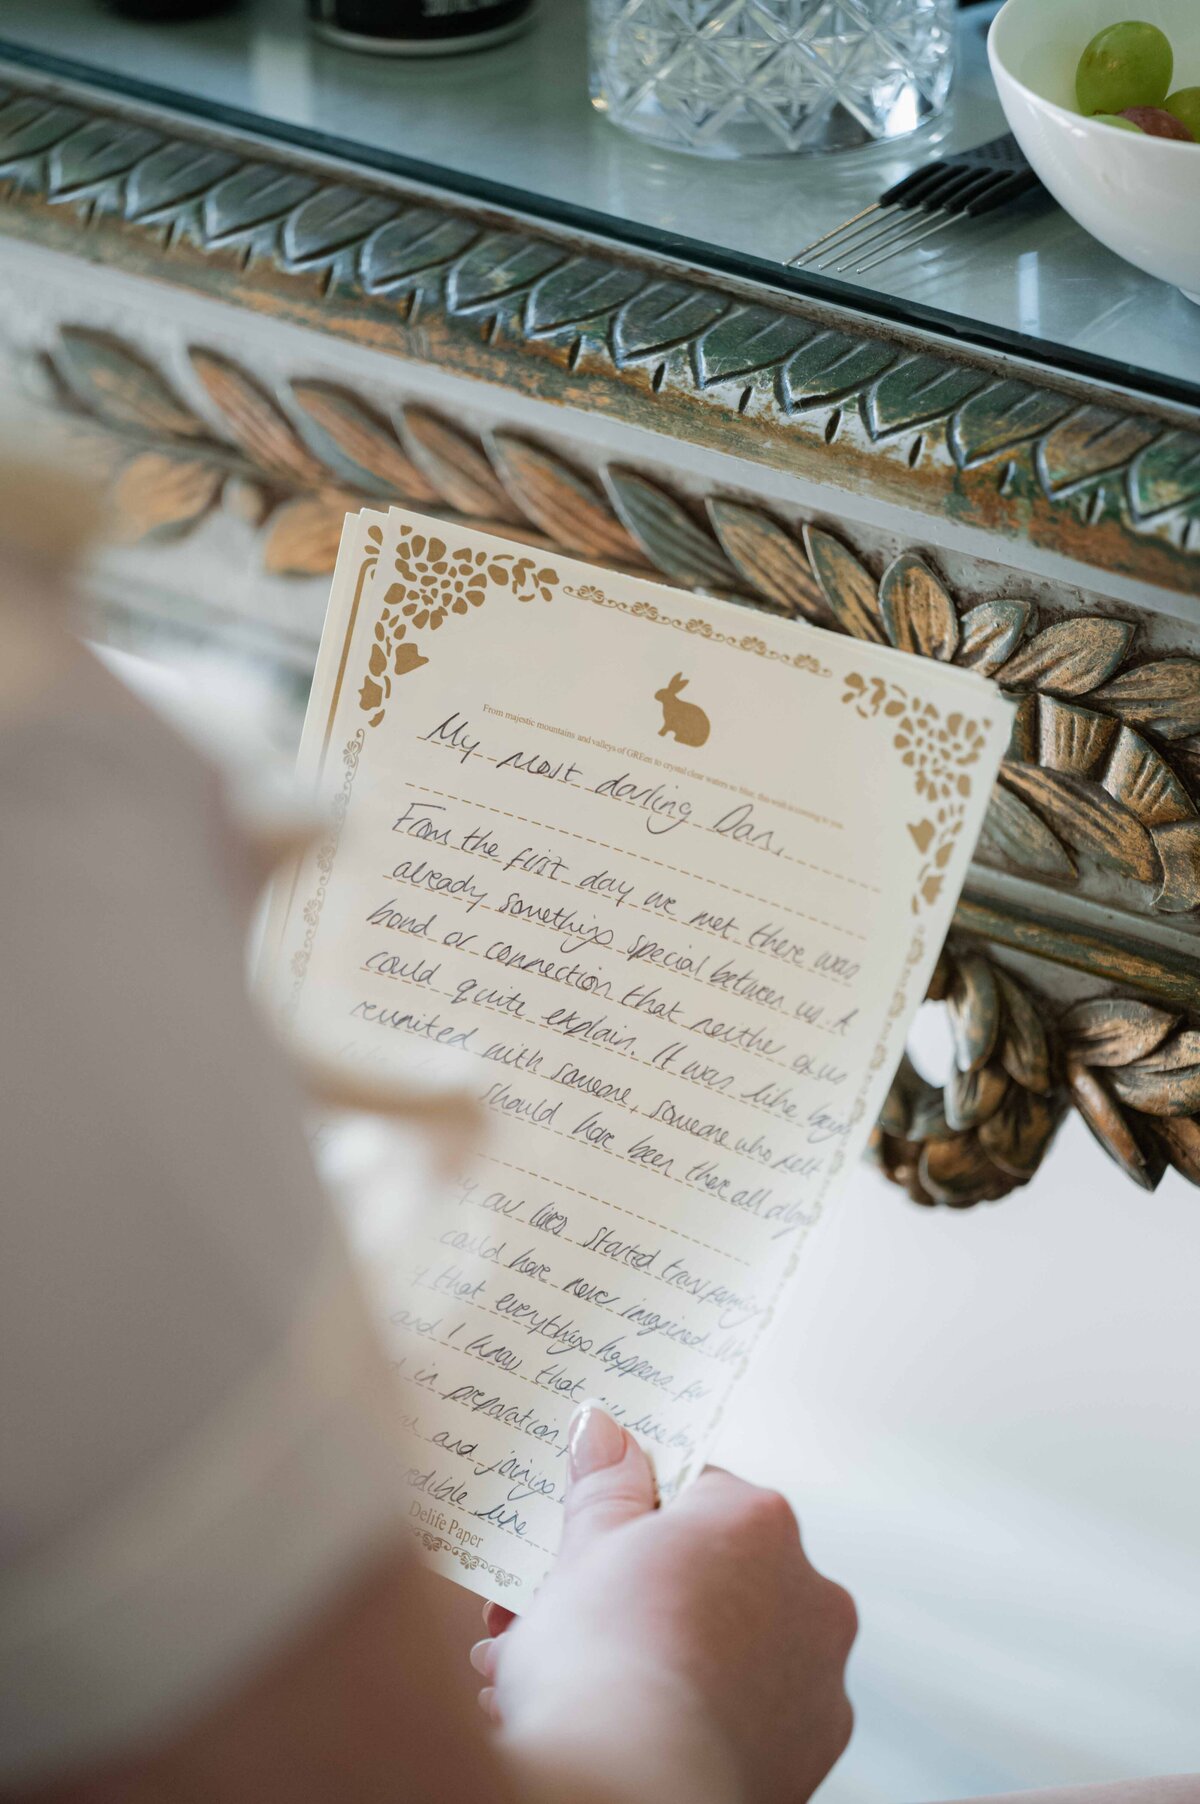 From majestic mountains and valleys of GREen to crystal clear waters so blue, this wish is coming to you.
My most darling Dan,
From the first day we met there was
already something special between us. A
bond or connection that neither of us
could quite explain. It was like being
reunited with someone, someone who felt
should have been there all along
our lives started transforming
could have never imagined.
that everything happens for
and I know that
in preparation
and joining
life
Delife Paper